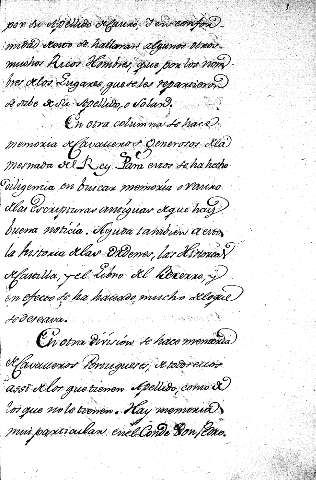 por de Apellido Castro, y en confor-
midad de esto se hallaran algunos otros
muchos Ricos Hombres, que por los nom-
bres de los Lugares, que se les repartieron
se sabe de su Apellido, o Solar.
En otra columna se hace
memoria de Cavalleros Generosos de la
mesnada del Rey. Para esto se ha hecho
diligencia en buscar memoria
de las Escripturas antiguas de que hay
buena noticia. Ayuda tambien a esto
la historia de las Ordenes, las Historias
de Castilla, y el Libro del Bezerro, y
en efecto se ha hallado mucho de lo que
se deseava.
En otra division se hace memoria
de Cavalleros Portugueses,
assi de los que tienen Apellido, como de
los que no lo tienen. Hay memoria
mui particular en el Conde Don Pedro.